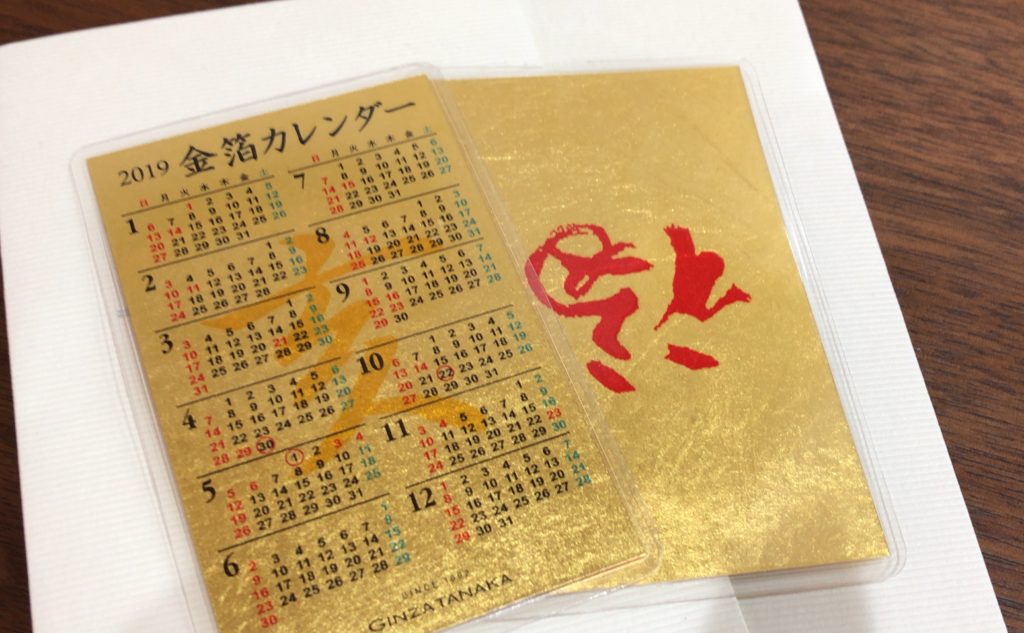 2019 金箔カレンダー
日 月 火 水 木 金 土
1
1 2 3 4 5
6 7 8 9 10 11 12
13 14 15 16 17 18 19
20 21 22 23 24 25 26
27 28 29 30 31
2
1 2
3 4 5 6 7 8 9
10 11 12 13 14 15 16
17 18 19 20 21 22 23
24 25 26 27 28
3
1 2
3 4 5 6 7 8 9
10 11 12 13 14 15 16
17 18 19 20 21 22 23
24 25 26 27 28 29 30
31
4
1 2 3 4 5 6
7 8 9 10 11 12 13
14 15 16 17 18 19 20
21 22 23 24 25 26 27
28 29 30
5
1 2 3 4
5 6 7 8 9 10 11
12 13 14 15 16 17 18
19 20 21 22 23 24 25
26 27 28 29 30 31
6
1
2 3 4 5 6 7 8
9 10 11 12 13 14 15
16 17 18 19 20 21 22
23 24 25 26 27 28 29
30
日 月 火 水 木 金 土
7
1 2 3 4 5 6
7 8 9 10 11 12 13
14 15 16 17 18 19 20
21 22 23 24 25 26 27
28 29 30 31
8
1 2 3
4 5 6 7 8 9 10
11 12 13 14 15 16 17
18 19 20 21 22 23 24
25 26 27 28 29 30 31
9
1 2 3 4 5 6 7
8 9 10 11 12 13 14
15 16 17 18 19 20 21
22 23 24 25 26 27 28
29 30
10
1 2 3 4 5
6 7 8 9 10 11 12
13 14 15 16 17 18 19
20 21 22 23 24 25 26
27 28 29 30 31
11
1 2
3 4 5 6 7 8 9
10 11 12 13 14 15 16
17 18 19 20 21 22 23
24 25 26 27 28 29 30
12
1 2 3 4 5 6 7
8 9 10 11 12 13 14
15 16 17 18 19 20 21
22 23 24 25 26 27 28
29 30 31
亥
SINCE 1892
GINZATANAKA